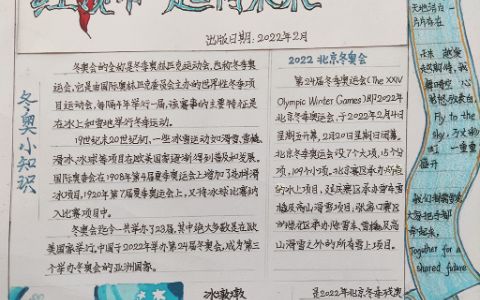 出版日期:2022年2月
冬奥小知识
冬奥会的全称是冬季奥林匹克运动会,也称冬季奥
运会,它是由国际奥林匹克委员会主办的世界性冬季项
目运动会,每隔4年举行一届,该赛事的主要特征是
在冰上和雪地举行冬季运动。
19世纪末20世纪初,一些冰雪运动如滑雪,雪橇,
滑冰,冰球等项目在欧美国家逐渐得到普及和发展。
国际奥委会在1908年第4届夏季奥运会上增加了花样滑
冰项目,1920年第7届夏季奥运会上,又将冰球比赛纳
入比赛项目中。
冬奥会迄今一共举办了23届,其中绝大多数是在欧
美国家举行,中国于2022年举办第24届冬奥会,成为第三
个举办冬奥会的亚洲国家。
2022 北京冬奥会
第24届冬季奥运会(The XXIV
Olympic Winter Games)即2022年
北京冬季奥运会,于2022年2月4日
星期五开幕,2月20日星期日闭幕,
北京冬季奥运会设7个大项,15个分
项,109个小项。北京赛区承办所有
的冰上项目,延庆赛区承办雪车雪
橇及高山滑雪项目,张家口赛区
的崇礼区承办除雪车、雪橇及高
山滑雪之外的所有雪上项目。
Fly to the
sky
Together for a
shared future
冰墩墩
是2022年北京冬季残奥